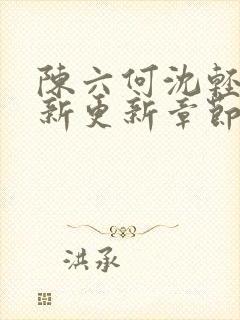 陳六何沈輕
新更新章節
洪承